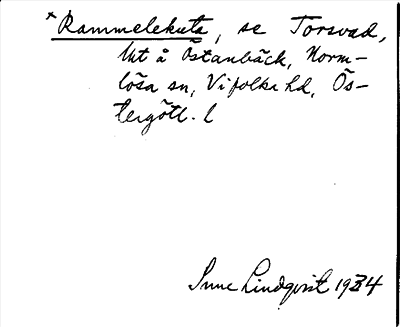 *Rammelekuta, se Torsvad,
Ukt å Östanbäck, Norm-
lösa sn, Vifolka hd, Ös-
tergötl. l
Sune Lindqvist 1934